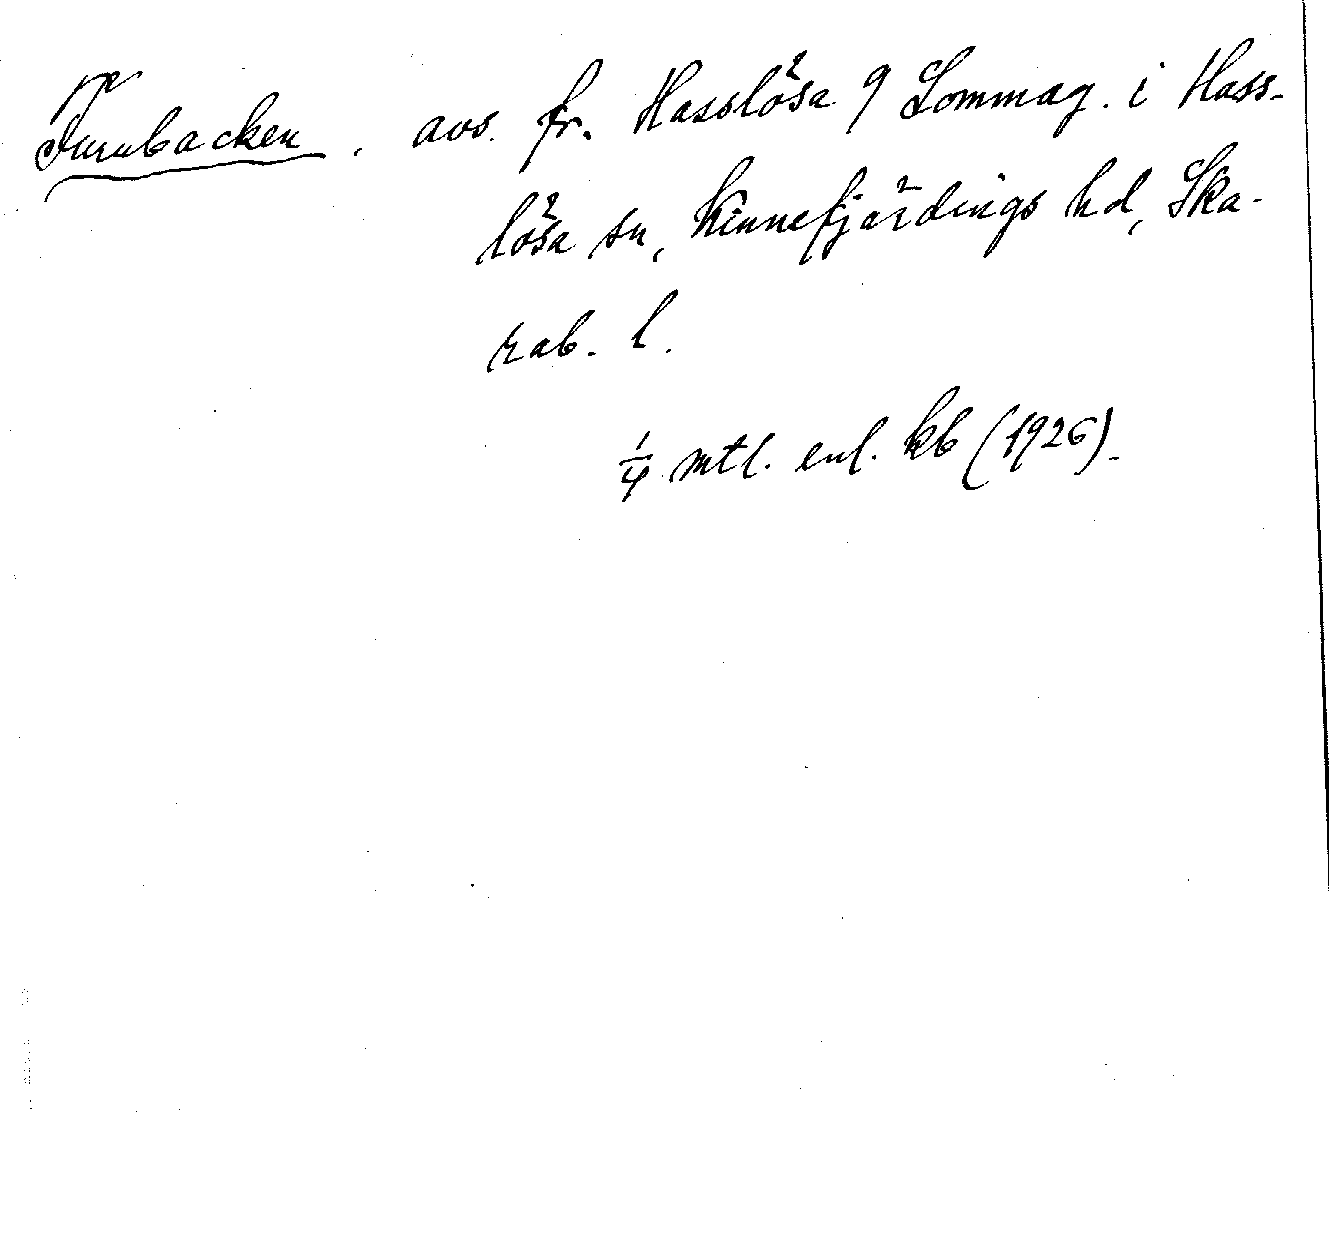 Furubacken, avs. fr. Hasslösa 9 Lommag. i Hass-
lösa sn, Kinnefjärdings hd, Ska-
rab. l.
1/4 mtl. enl. kb (1926).